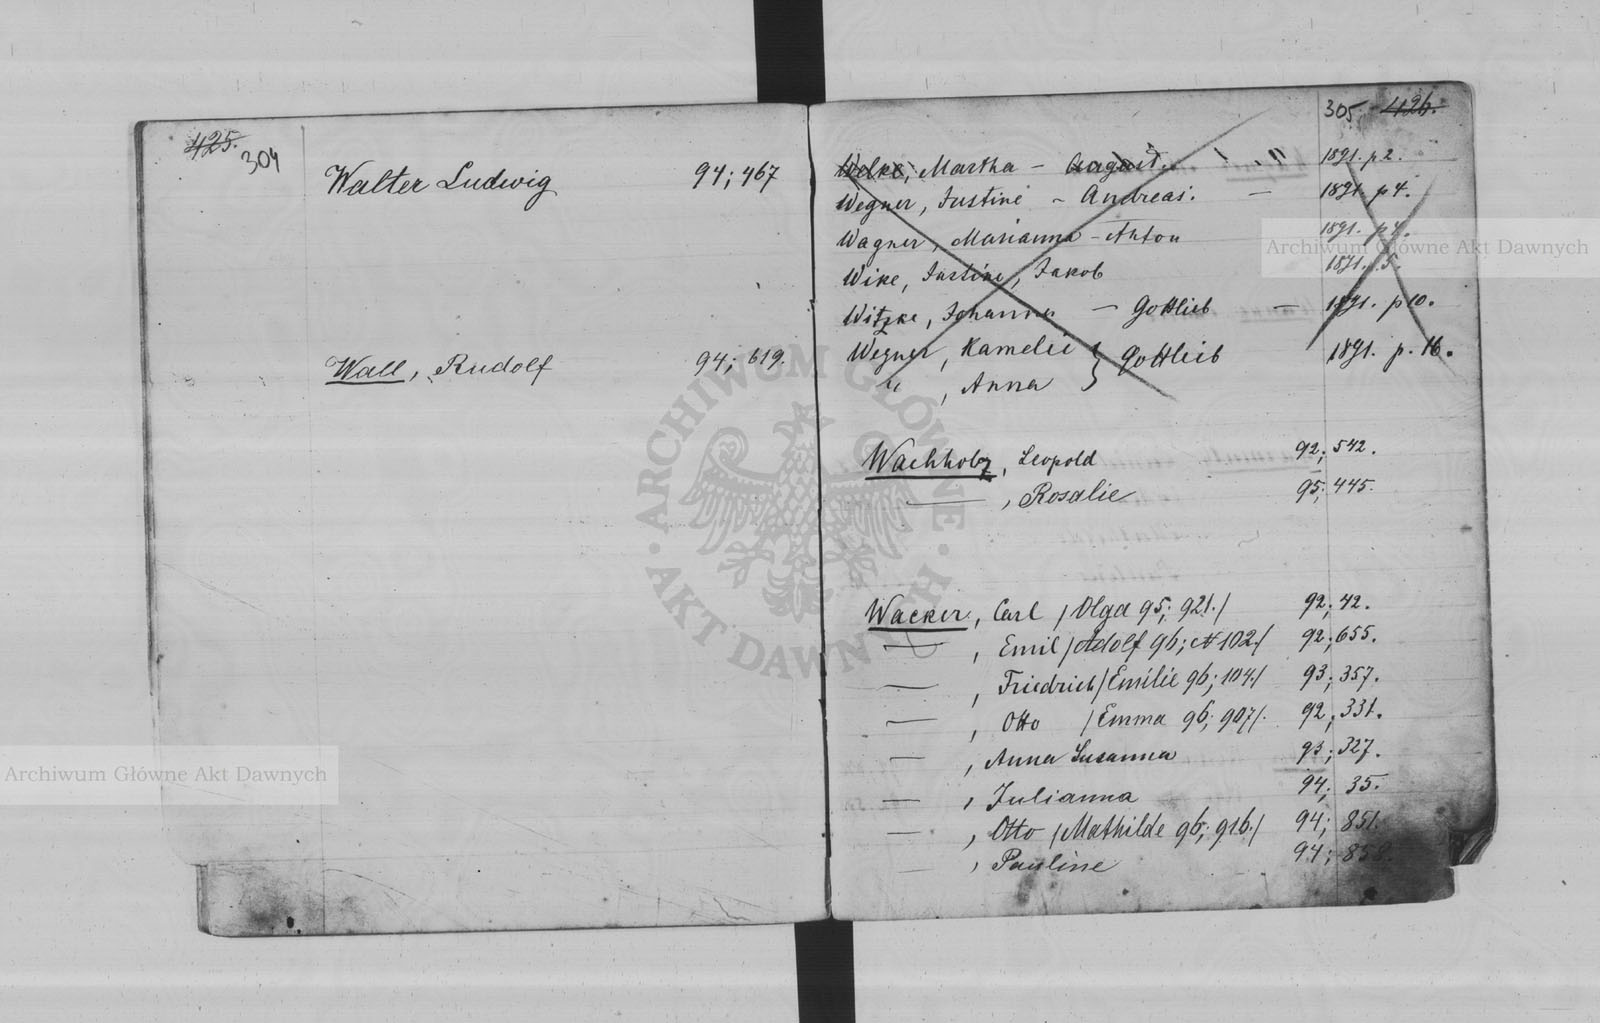 425.
304
Walter Ludwig 94; 467
Wall, Rudolf 94; 619.
305. 426.
Welke, Martha – August. 1891. p 2.
Wegner, Justine – Andreas. — 1891. p 4.
Wagner, Marianna – Anton 1891. p 4.
Wike, Justine, Jakob 1891. p. 5.
Witzke, Johanna — Gottlieb — 1891. p 10.
Wegner, Kamelie } Gottlieb 1891. p. 16.
" , Anna
Wachholz, Leopold 92; 542.
— , Rosalie 95; 445.
Wacker, Carl /Olga 95; 921./ 92; 42.
— , Emil /Adolf 96; N 102./ 92; 655.
— , Friedrich /Emilie 96; 104./ 93; 357.
— , Otto /Emma 96; 907/. 92; 331.
— , Anna Susanna 93; 327.
— , Julianna 94; 35.
— , Otto /Mathilde 96; 916./ 94; 851.
— , Pauline 94; 858.
ARCHIWUM GŁÓWNE AKT DAWNYCH
Archiwum Główne Akt Dawnych
Archiwum Główne Akt Dawnych